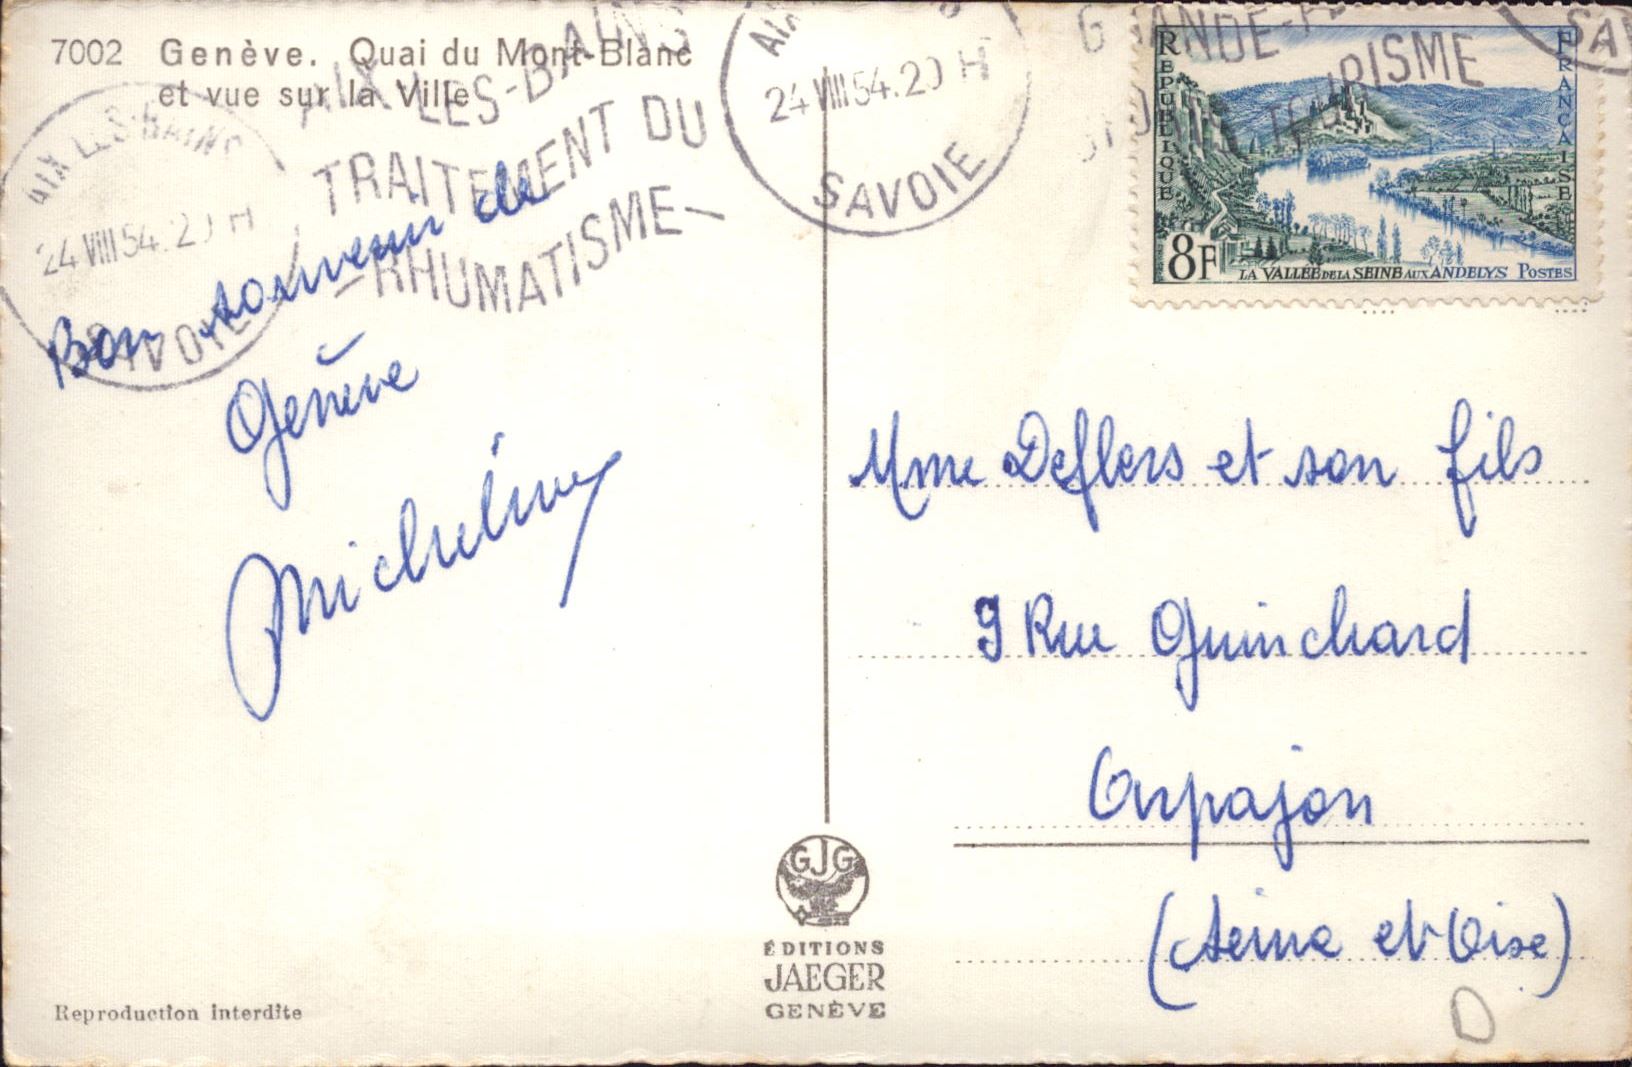 7002 Genève. Quai du Mont-Blanc
et vue sur la Ville
AIX LES-BAINS
24 VIII 54.20 H
SAVOIE
AIX LES-BAINS
TRAITEMENT DU
-RHUMATISME-
24 VIII 54.20 H
SAVOIE
TOURISME
REPUBLIQUE
FRANCAISE
8F
LA VALLÉE DE LA SEINE AUX ANDELYS POSTES
Bon souvenir de
Genève
Micheline
Mme Deflers et son fils
9 Rue Guinchard
Arpajon
(Seine et Oise)
GJG
ÉDITIONS
JAEGER
GENÈVE
Reproduction interdite